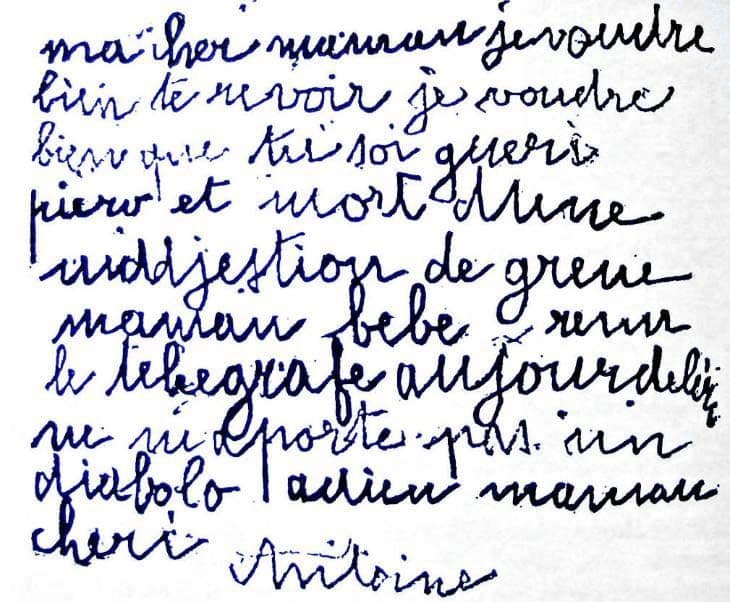 ma cher maman je voudre
bien te revoir je voudre
bien que tu soi gueri
piero et mort dune
niddjestion de grene
maman bebe
le telegrafe aujourd
ne m aporte pas un
diabolo adieu maman
cheri Antoine